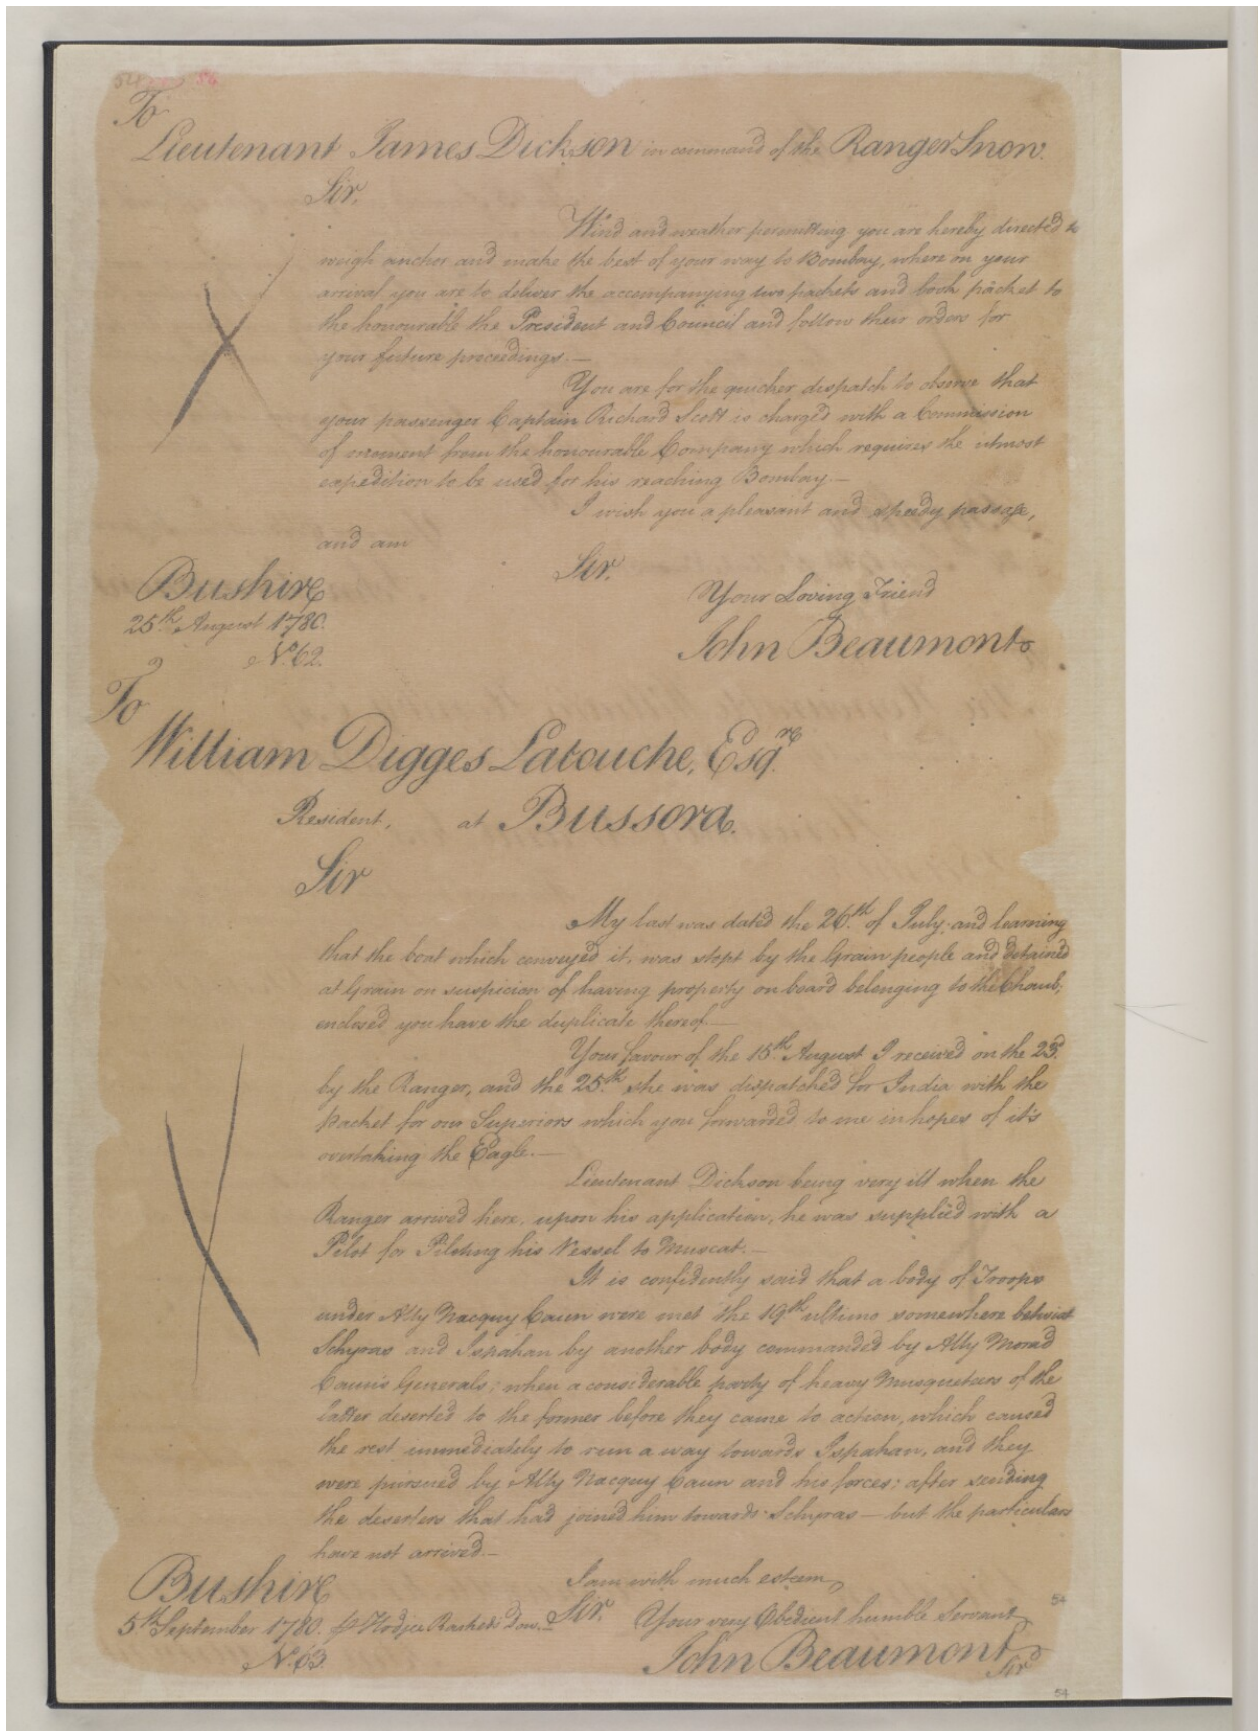 To
Lieutenant James Dickson in command of the Ranger Snow.
Sir,
Wind and weather permitting you are hereby directed to
weigh anchor and make the best of your way to Bombay, where on your
arrival you are to deliver the accompanying two packets and book packet to
the honourable the President and Council and follow their orders for
your future proceedings.—
You are for the quicker dispatch to observe that
your passenger Captain Richard Scott is charged with a Commission
of moment from the honourable Company which requires the utmost
expedition to be used for his reaching Bombay.—
I wish you a pleasant and speedy passage,
and am
Sir,
Bushire
Your Loving Friend
25th August 1780.
John Beaumont
No. 62.
To
William Digges Latouche, Esqre.
Resident, at Bussora.
Sir
My last was dated the 26th of July, and learning
that the boat which conveyed it, was stopt by the Grain people and detained
at Grain on suspicion of having property on board belonging to the Chaub;
enclosed you have the duplicate thereof.—
Your favour of the 15th August I received on the 23d
by the Ranger, and the 25th she was dispatched for India with the
Packet for our Superiors which you forwarded to me in hopes of it's
overtaking the Eagle.—
Lieutenant Dickson being very ill when the
Ranger arrived here, upon his application, he was supplied with a
Pilot for Piloting his Vessel to Muscat.—
It is confidently said that a body of Troops
under Ally Nacquy Caun were met the 19th ultimo somewhere betwixt
Schyras and Ispahan by another body commanded by Ally Morad
Caun's Generals; when a considerable party of heavy Musqueteers of the
latter deserted to the former before they came to action, which caused
the rest immediately to run a way towards Ispahan, and they
were pursued by Ally Nacquy Caun and his forces; after sending
the deserters that had joined him towards Schyras — but the particulars
have not arrived.—
I am with much esteem,
Bushire
Sir,
Your very Obedient humble Servant
5th September 1780. Hodjee Rashed's Dow.
John Beaumont
No. 63.
Sir
54
54